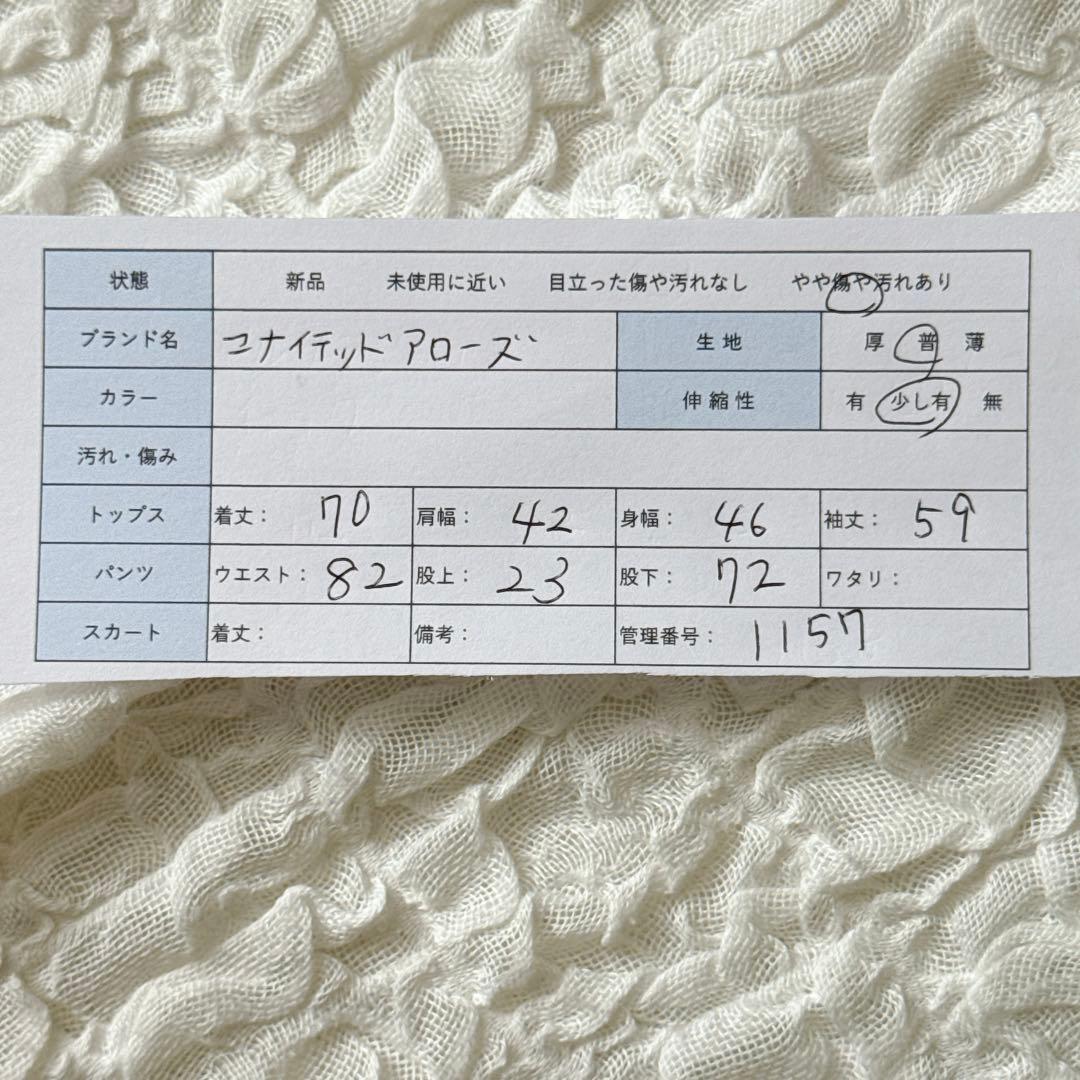 状態 新品 未使用に近い 目立った傷や汚れなし やや傷や汚れあり
ブランド名 ユナイテッドアローズ 生地 厚 普 薄
カラー 伸縮性 有 少し有 無
汚れ・傷み
トップス 着丈： 70 肩幅： 42 身幅： 46 袖丈： 59
パンツ ウエスト： 82 股上： 23 股下： 72 ワタリ：
スカート 着丈： 備考： 管理番号： 1157